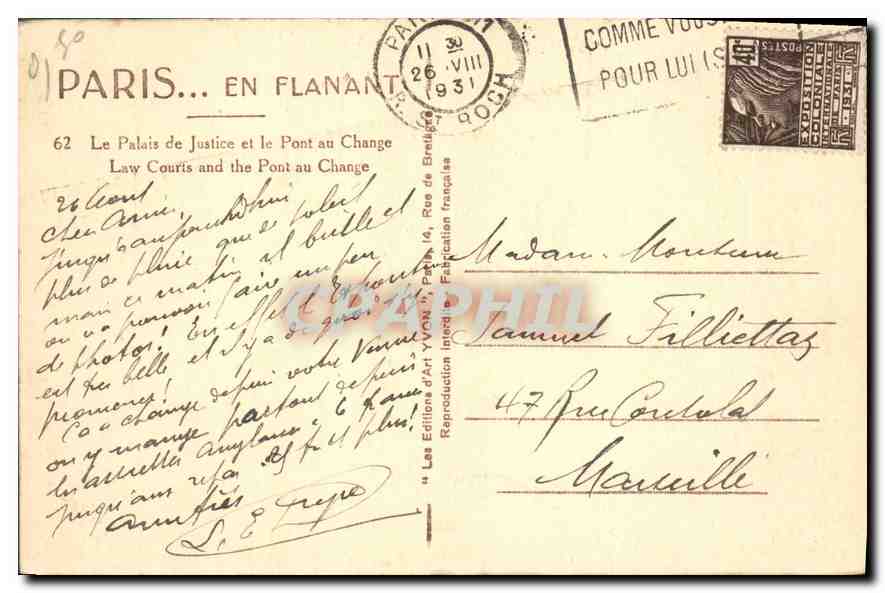 PARIS... EN FLANANT
62 Le Palais de Justice et le Pont au Change
Law Courts and the Pont au Change
11 30
26 VIII
1931
R. St ROCH
COMME VOUS
POUR LUI
40c
POSTES
EXPOSITION
COLONIALE
INTERNle DE PARIS
1931
26 Aout
Chers Amis,
Jusqu'à aujourd'hui
plus de pluie que de soleil
mais ce matin il brille et
on va pouvoir faire un peu
de photos! En effet l'Exposition
est très belle et il y a de quoi s'y
promener!
Ça change depuis votre
on y mange partout depuis
les assiettes anglaises à 6 francs
jusqu'aux repas
Amitiés
"Les Editions d'Art YVON", Paris, 14, Rue de Bretagne
Reproduction Interdite Fabrication française
CPAPHIL
Madame Monsieur
Samuel Filliettaz
47 Rue Consolat
Marseille